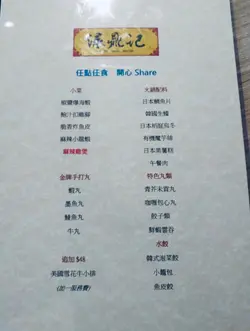 鼎記
任點任食 開心 Share
小菜
椒鹽爆海蝦
鮑汁扣鵝腳
脆香炸魚皮
麻辣小龍蝦
麻辣雞煲
金牌手打丸
蝦丸
墨魚丸
鯪魚丸
牛丸
追加 $48
美國雪花牛小排
(加一服務費)
火鍋配料
日本鯛魚片
韓國生蠔
日本稻庭烏冬
有機魔芋絲
日本黑薯糕
午餐肉
特色丸類
青芥末貢丸
咖喱包心丸
餃子類
鮮蝦雲吞
水餃
韓式泡菜餃
小籠包
魚皮餃